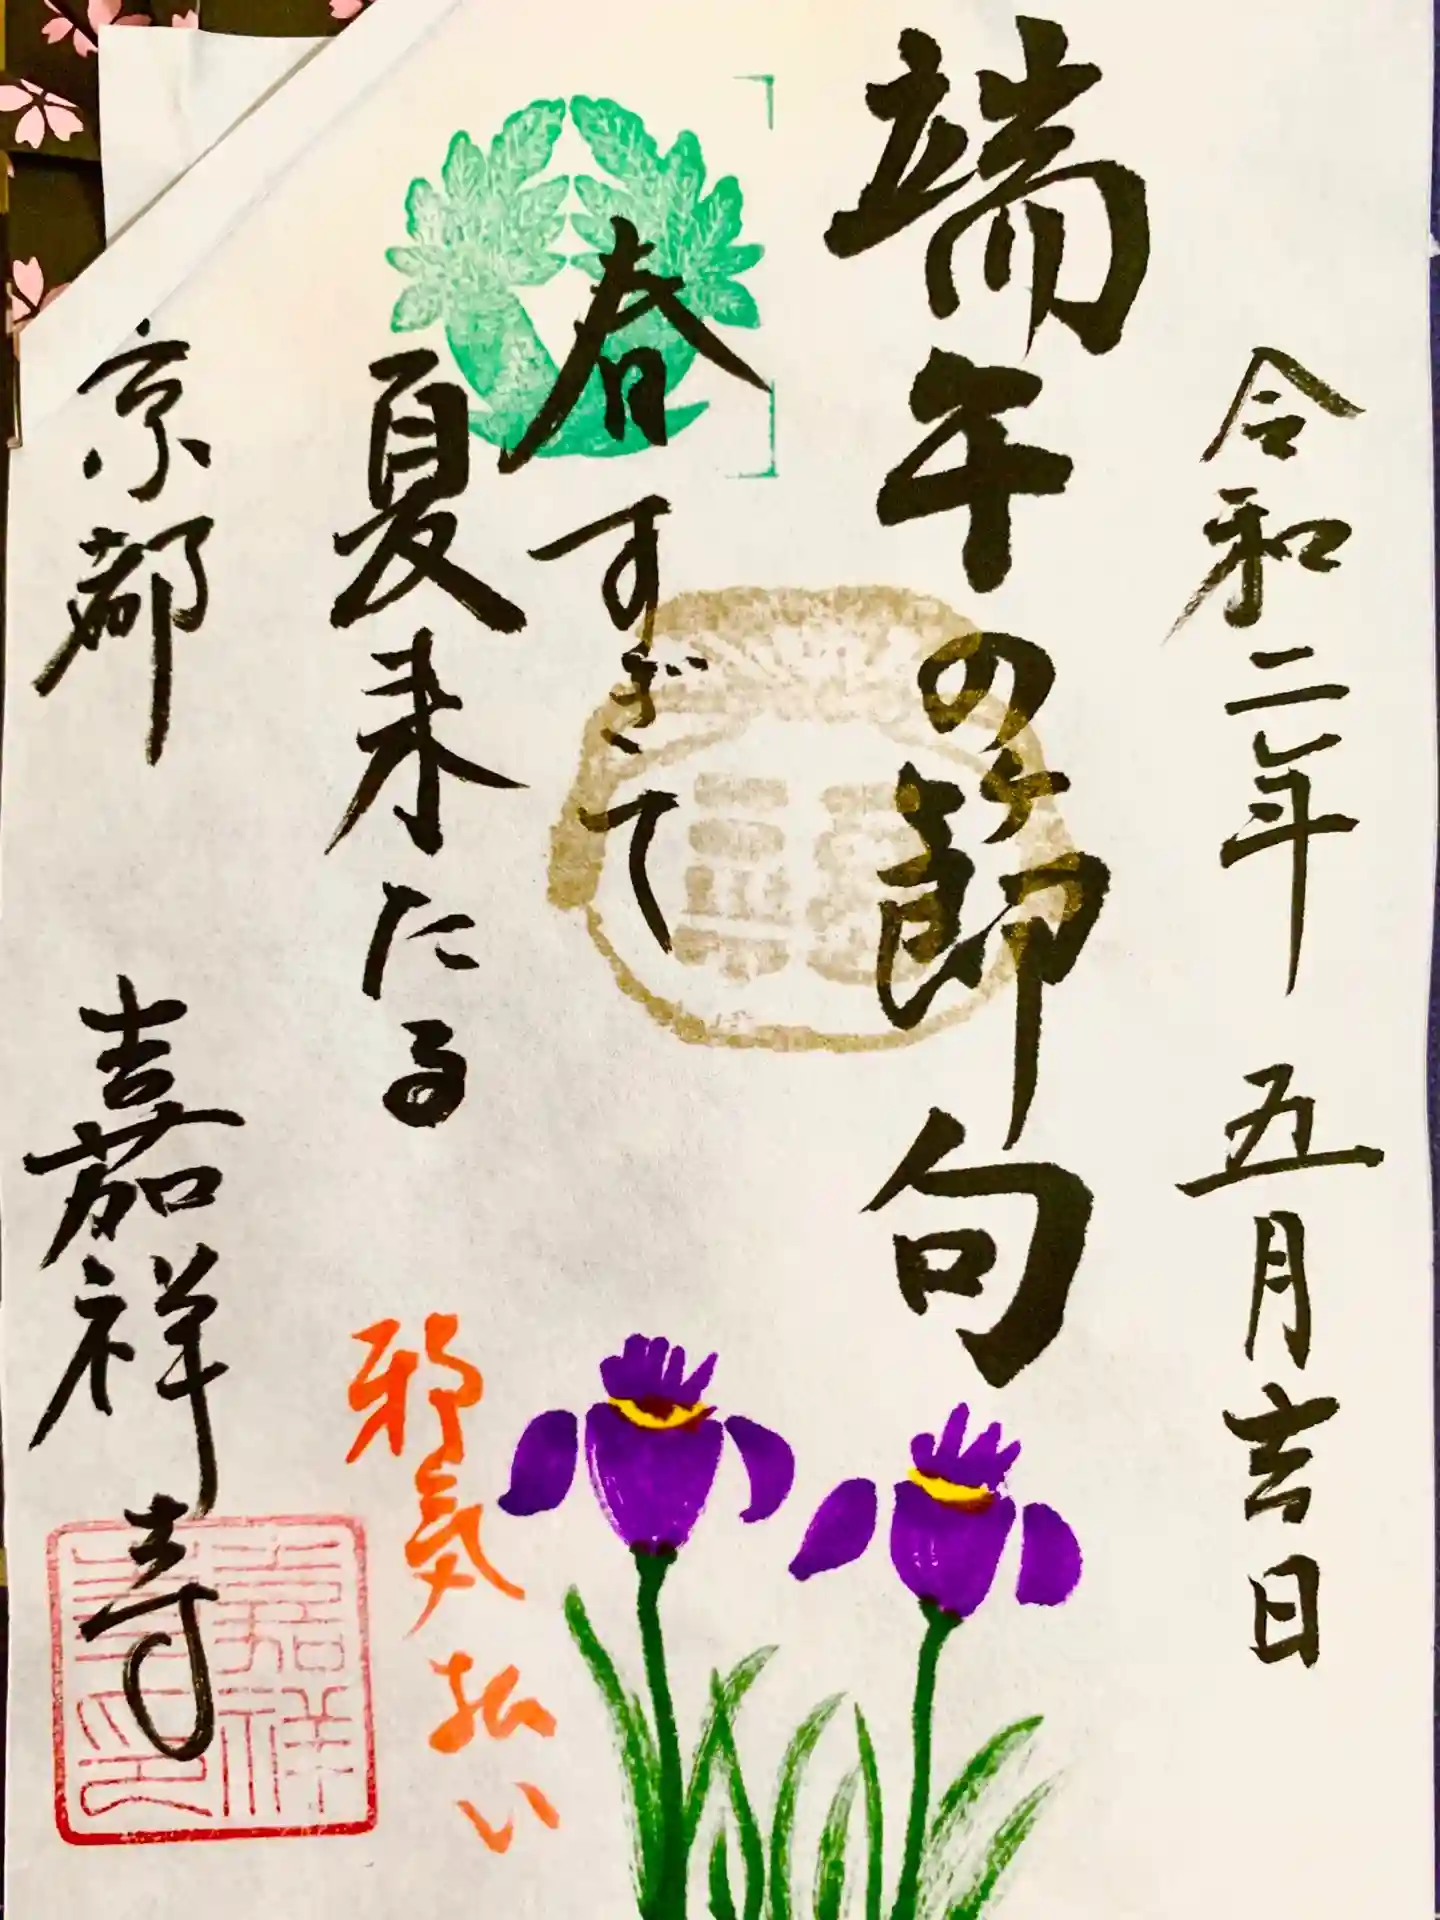 令和二年 五月吉日
端午の節句
春すぎて
夏来たる
邪気払い
京都 嘉祥寺
嘉祥寺印